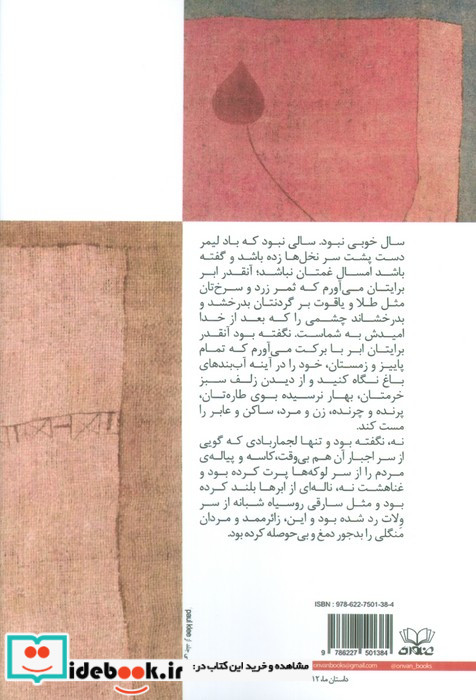 سال خوبی نبود. سالی نبود که باد لیمر
دست پشت سر نخل‌ها زده باشد و گفته
باشد امسال غمتان نباشد؛ آنقدر ابر
برایتان می‌آورم که ثمر زرد و سرخ‌تان
مثل طلا و یاقوت بر گردنتان بدرخشد و
بدرخشاند چشمی را که بعد از خدا
امیدش به شماست. نگفته بود آنقدر
برایتان ابر با برکت می‌آورم که تمام
پاییز و زمستان، خود را در آینه آب‌بندهای
باغ نگاه کنید و از دیدن زلف سبز
خرمتان، بهار نرسیده بوی طاره‌تان،
پرنده و چرنده، زن و مرد، ساکن و عابر را
مست کند.
نه، نگفته بود و تنها لجماربادی که گویی
از سر اجبار آن هم بی‌وقت، کاسه و پیاله‌ی
مردم را از سر لوکه‌ها پرت کرده بود و
غناهشت نه، ناله‌ای از ابرها بلند کرده
بود و مثل سارقی روسیاه شبانه از سر
ولات رد شده بود و این، زائرممد و مردان
منگلی را بدجور دمغ و بی‌حوصله کرده بود.
paul klee
ISBN : 978-622-7501-38-4
9 786227 501384
@onvan_books
داستان ما، ۱۲
مشاهده و خرید این کتاب در:
idebook.ir